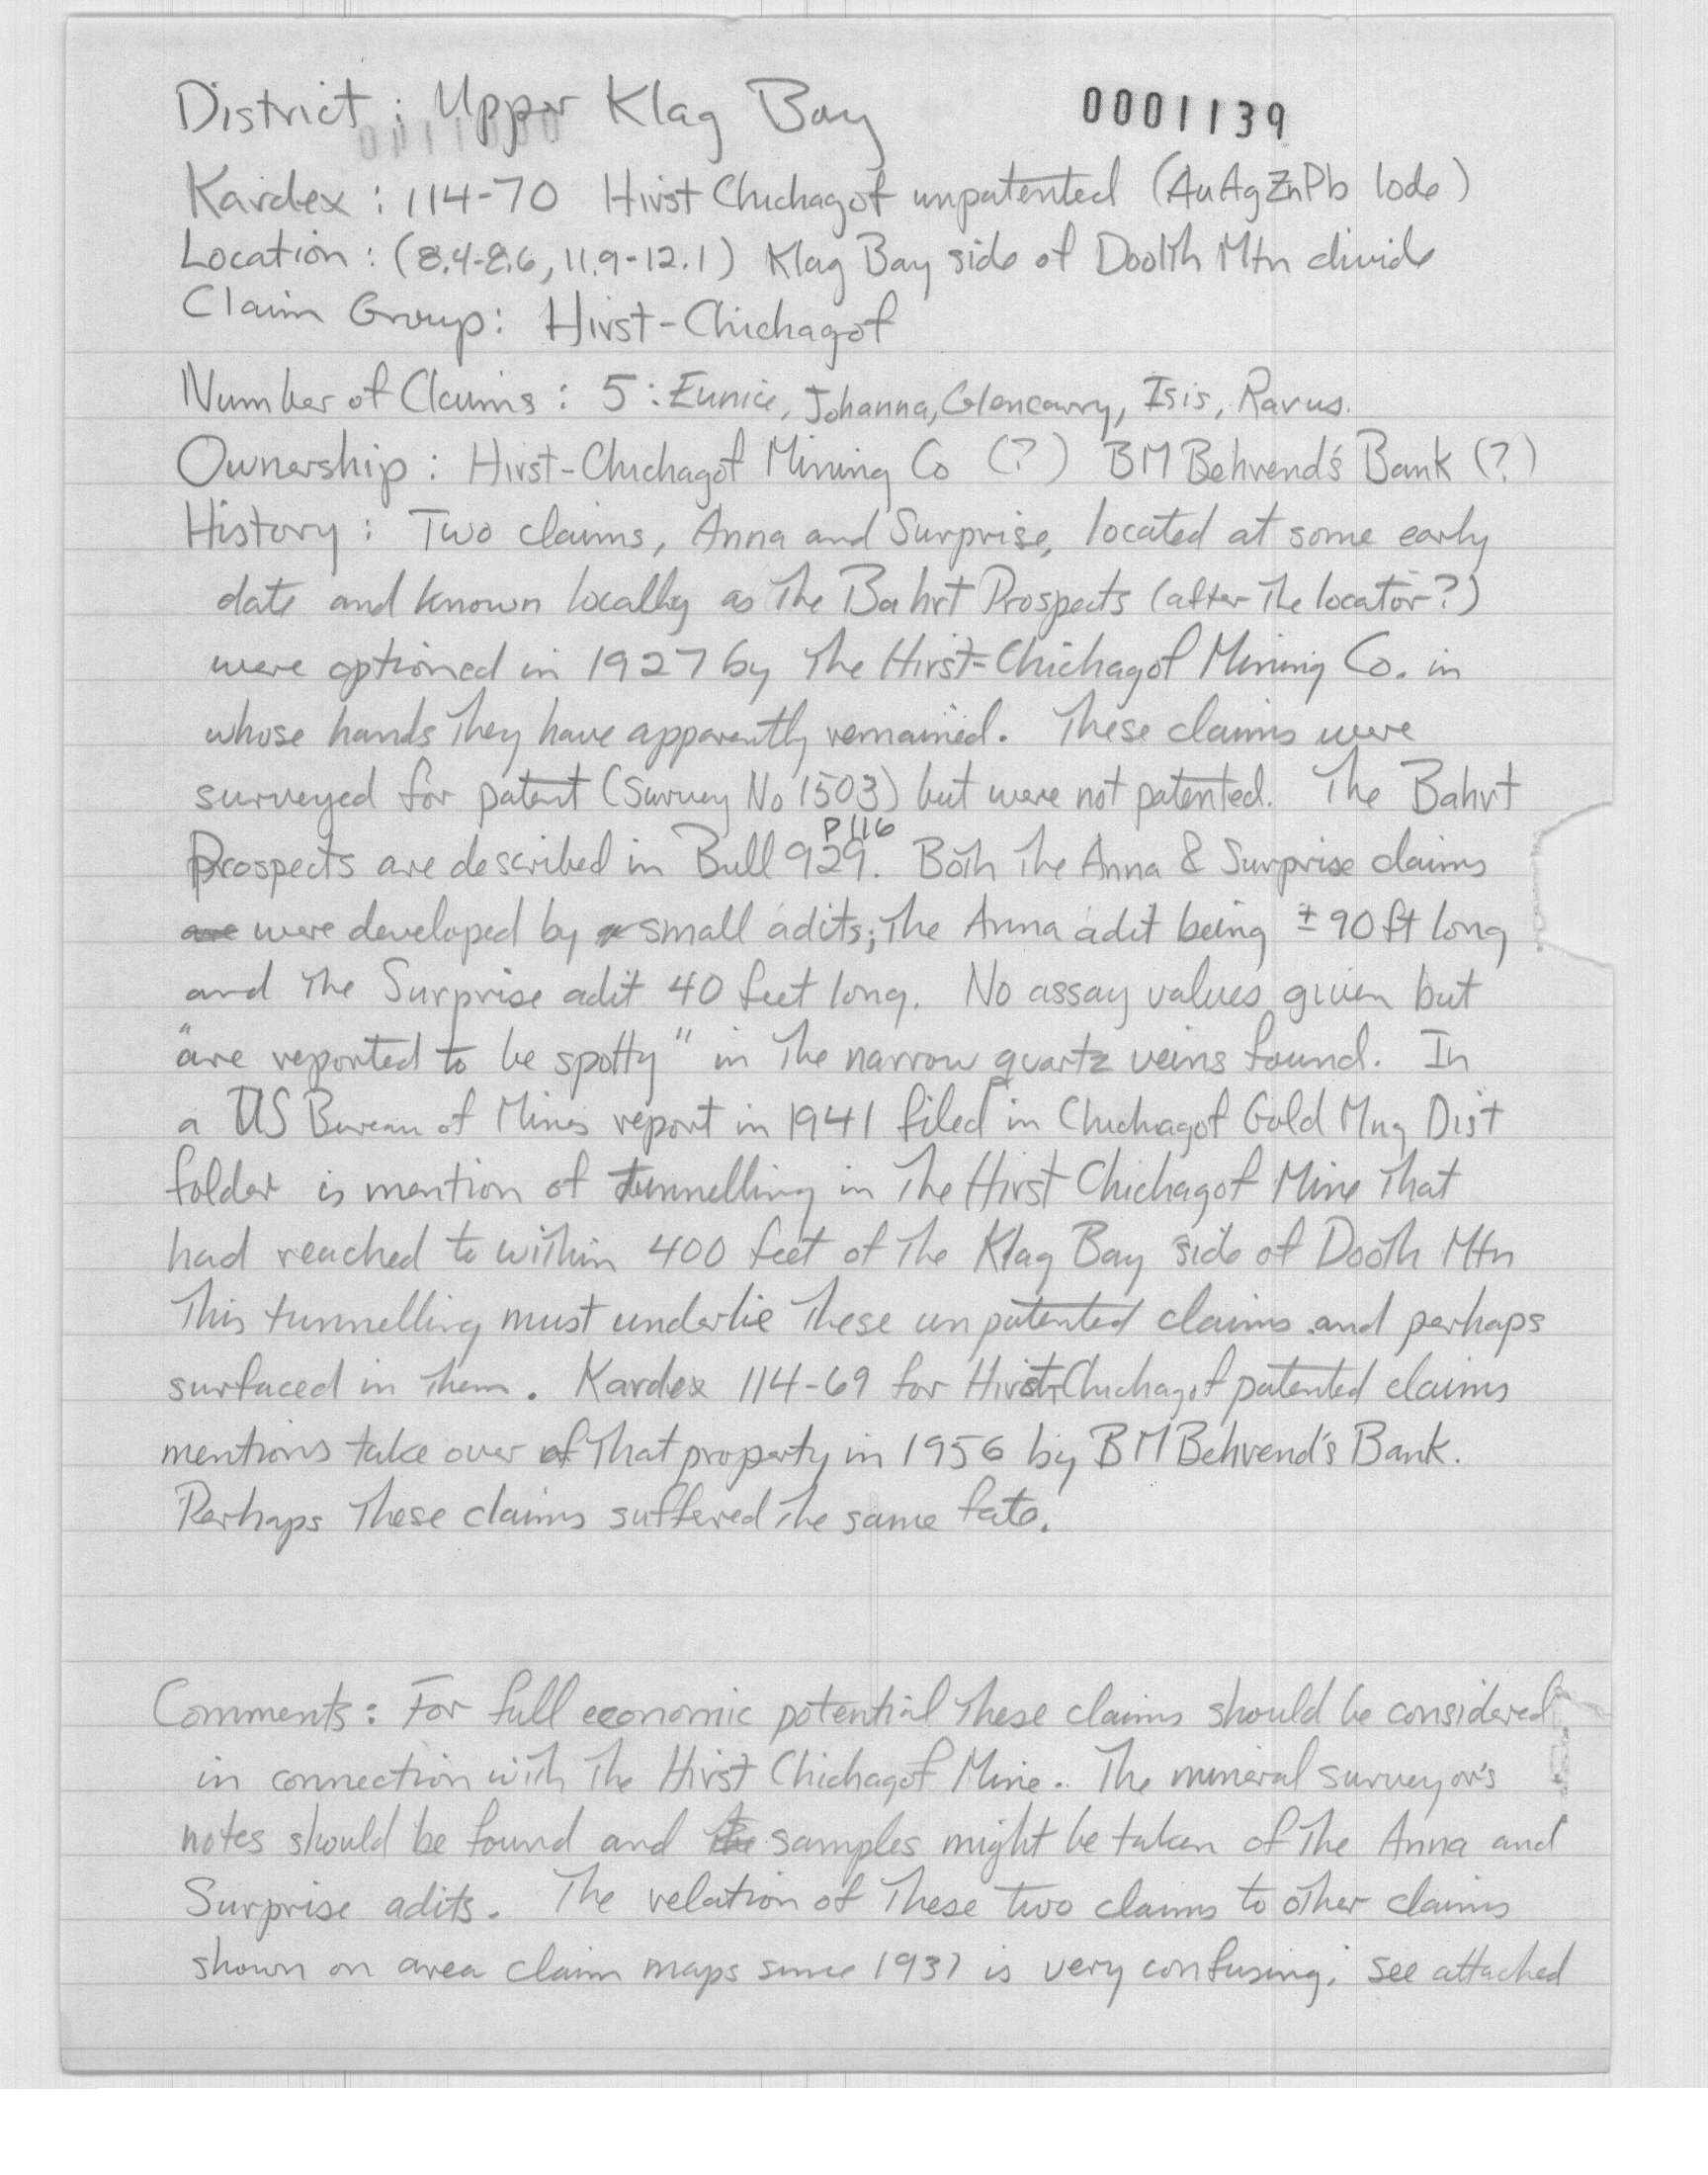 District : Upper Klag Bay 0001139
Kardex : 114-70 Hirst Chichagof unpatented (Au Ag Zn Pb lode)
Location : (8.4-8.6, 11.9-12.1) Klag Bay side of Doolth Mtn divide
Claim Group: Hirst-Chichagof
Number of Claims : 5 : Eunice, Johanna, Glencarry, Isis, Ravus.
Ownership : Hirst-Chichagof Mining Co (?) BM Behrend's Bank (?)
History : Two claims, Anna and Surprise, located at some early
date and known locally as The Bahrt Prospects (after The locator?)
were optioned in 1927 by The Hirst-Chichagof Mining Co. in
whose hands They have apparently remained. These claims were
surveyed for patent (Survey No 1503) but were not patented. The Bahrt
P 116
Prospects are described in Bull 929. Both The Anna & Surprise claims
are were developed by a small adits; The Anna adit being ± 90 ft long
and The Surprise adit 40 feet long. No assay values given but
"are reported to be spotty" in The narrow quartz veins found. In
a US Bureau of Mines report in 1941 filed in Chichagof Gold Mng Dist
folder is mention of tunnelling in The Hirst Chichagof Mine That
had reached to within 400 feet of The Klag Bay side of Dooth Mtn
This tunnelling must underlie These unpatented claims and perhaps
surfaced in Them. Kardex 114-69 for Hirst-Chichagof patented claims
mentions take over of That property in 1956 by BM Behrend's Bank.
Perhaps These claims suffered The same fate.
Comments : For full economic potential These claims should be considered
in connection with The Hirst Chichagof Mine. The mineral surveyor's
notes should be found and the samples might be taken of The Anna and
Surprise adits. The relation of These two claims to other claims
shown on area claim maps since 1937 is very confusing; see attached